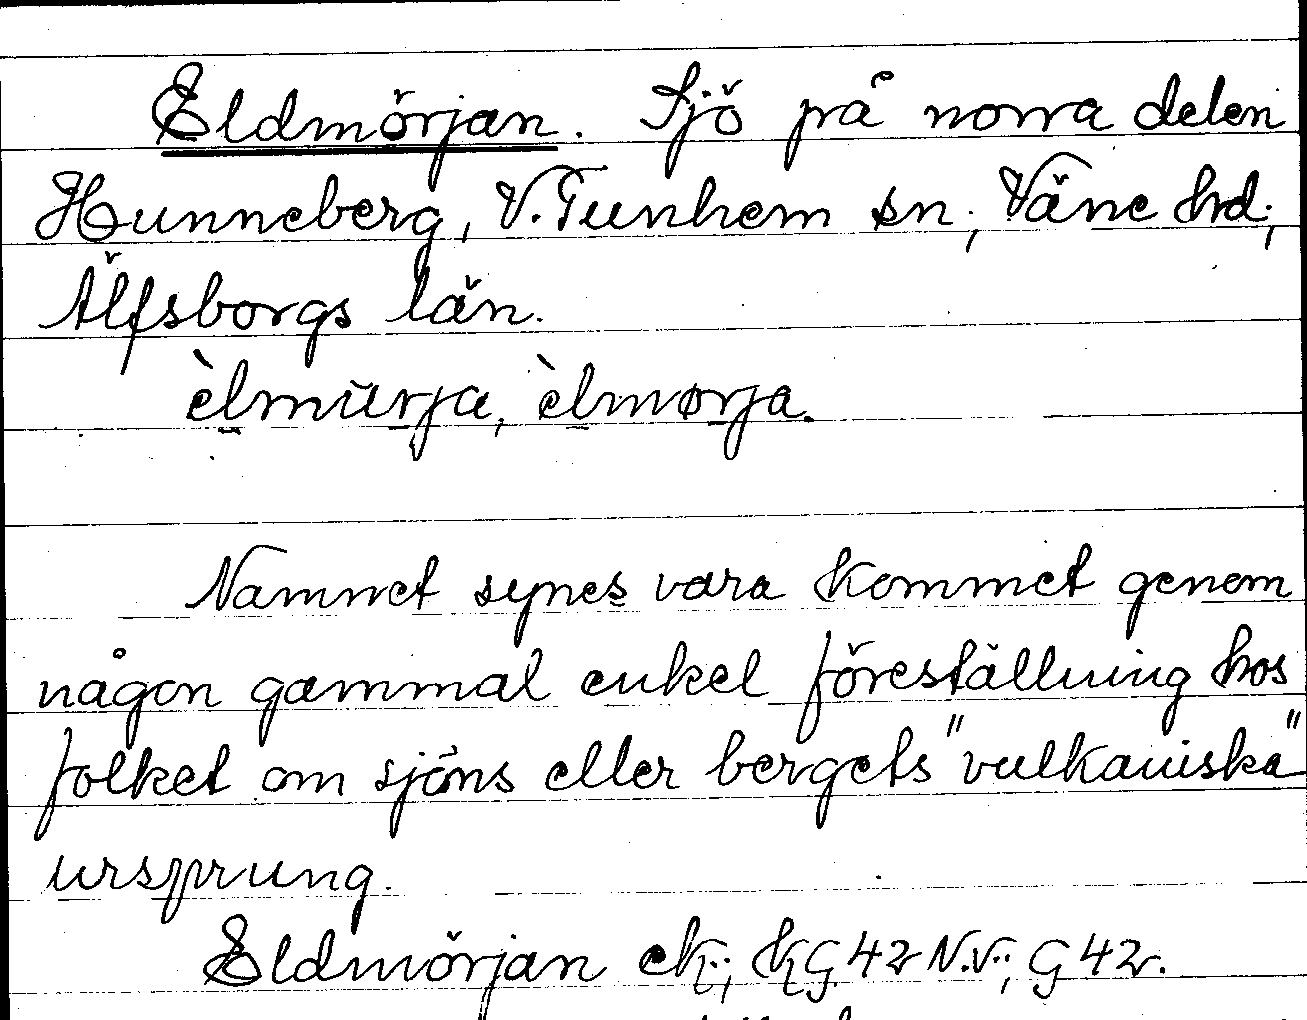 Eldmörjan. Sjö på norra delen
Hunneberg, V. Tunhem sn; Väne hd;
Älfsborgs län.
èlmurja, èlmørja.
Namnet synes vara kommet genom
någon gammal enkel föreställning hos
folket om sjöns eller bergets "vulkaniska"
ursprung.
Eldmörjan ek; KG 42 N.V.; G 42.